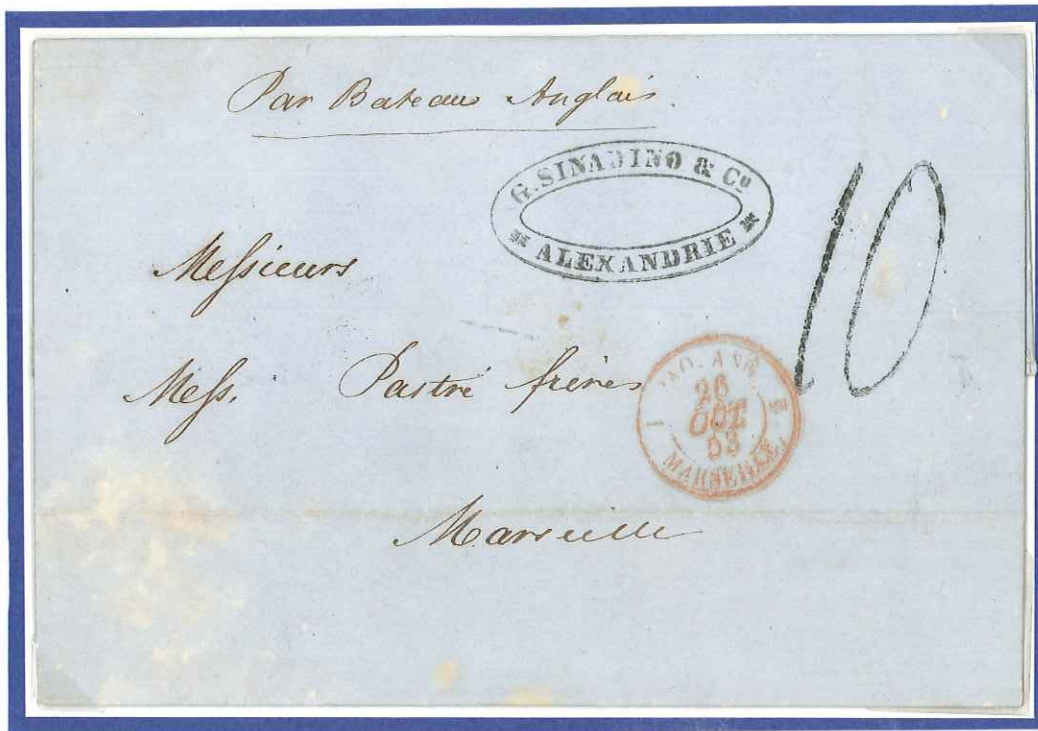 Par Bateau Anglais
G. SINADINO & Cº
ALEXANDRIE
10
Messieurs
Mess. Pastré frères
ANG.
26
OCT.
53
MARSEILLE
Marseille